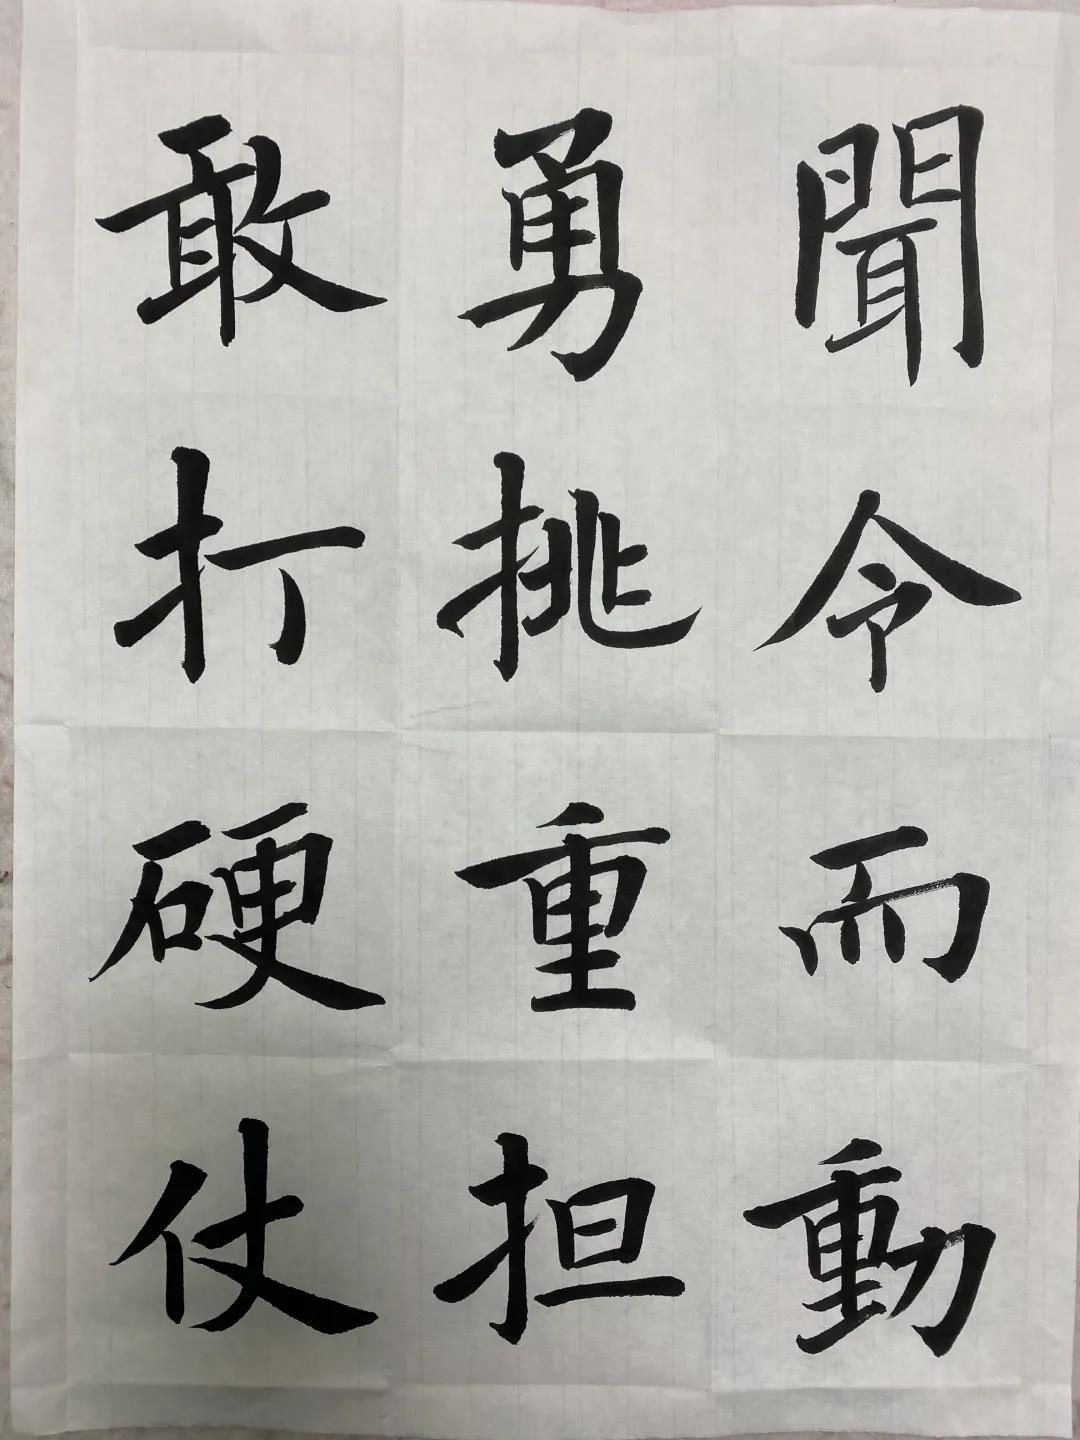 聞令而動
勇挑重担
敢打硬仗